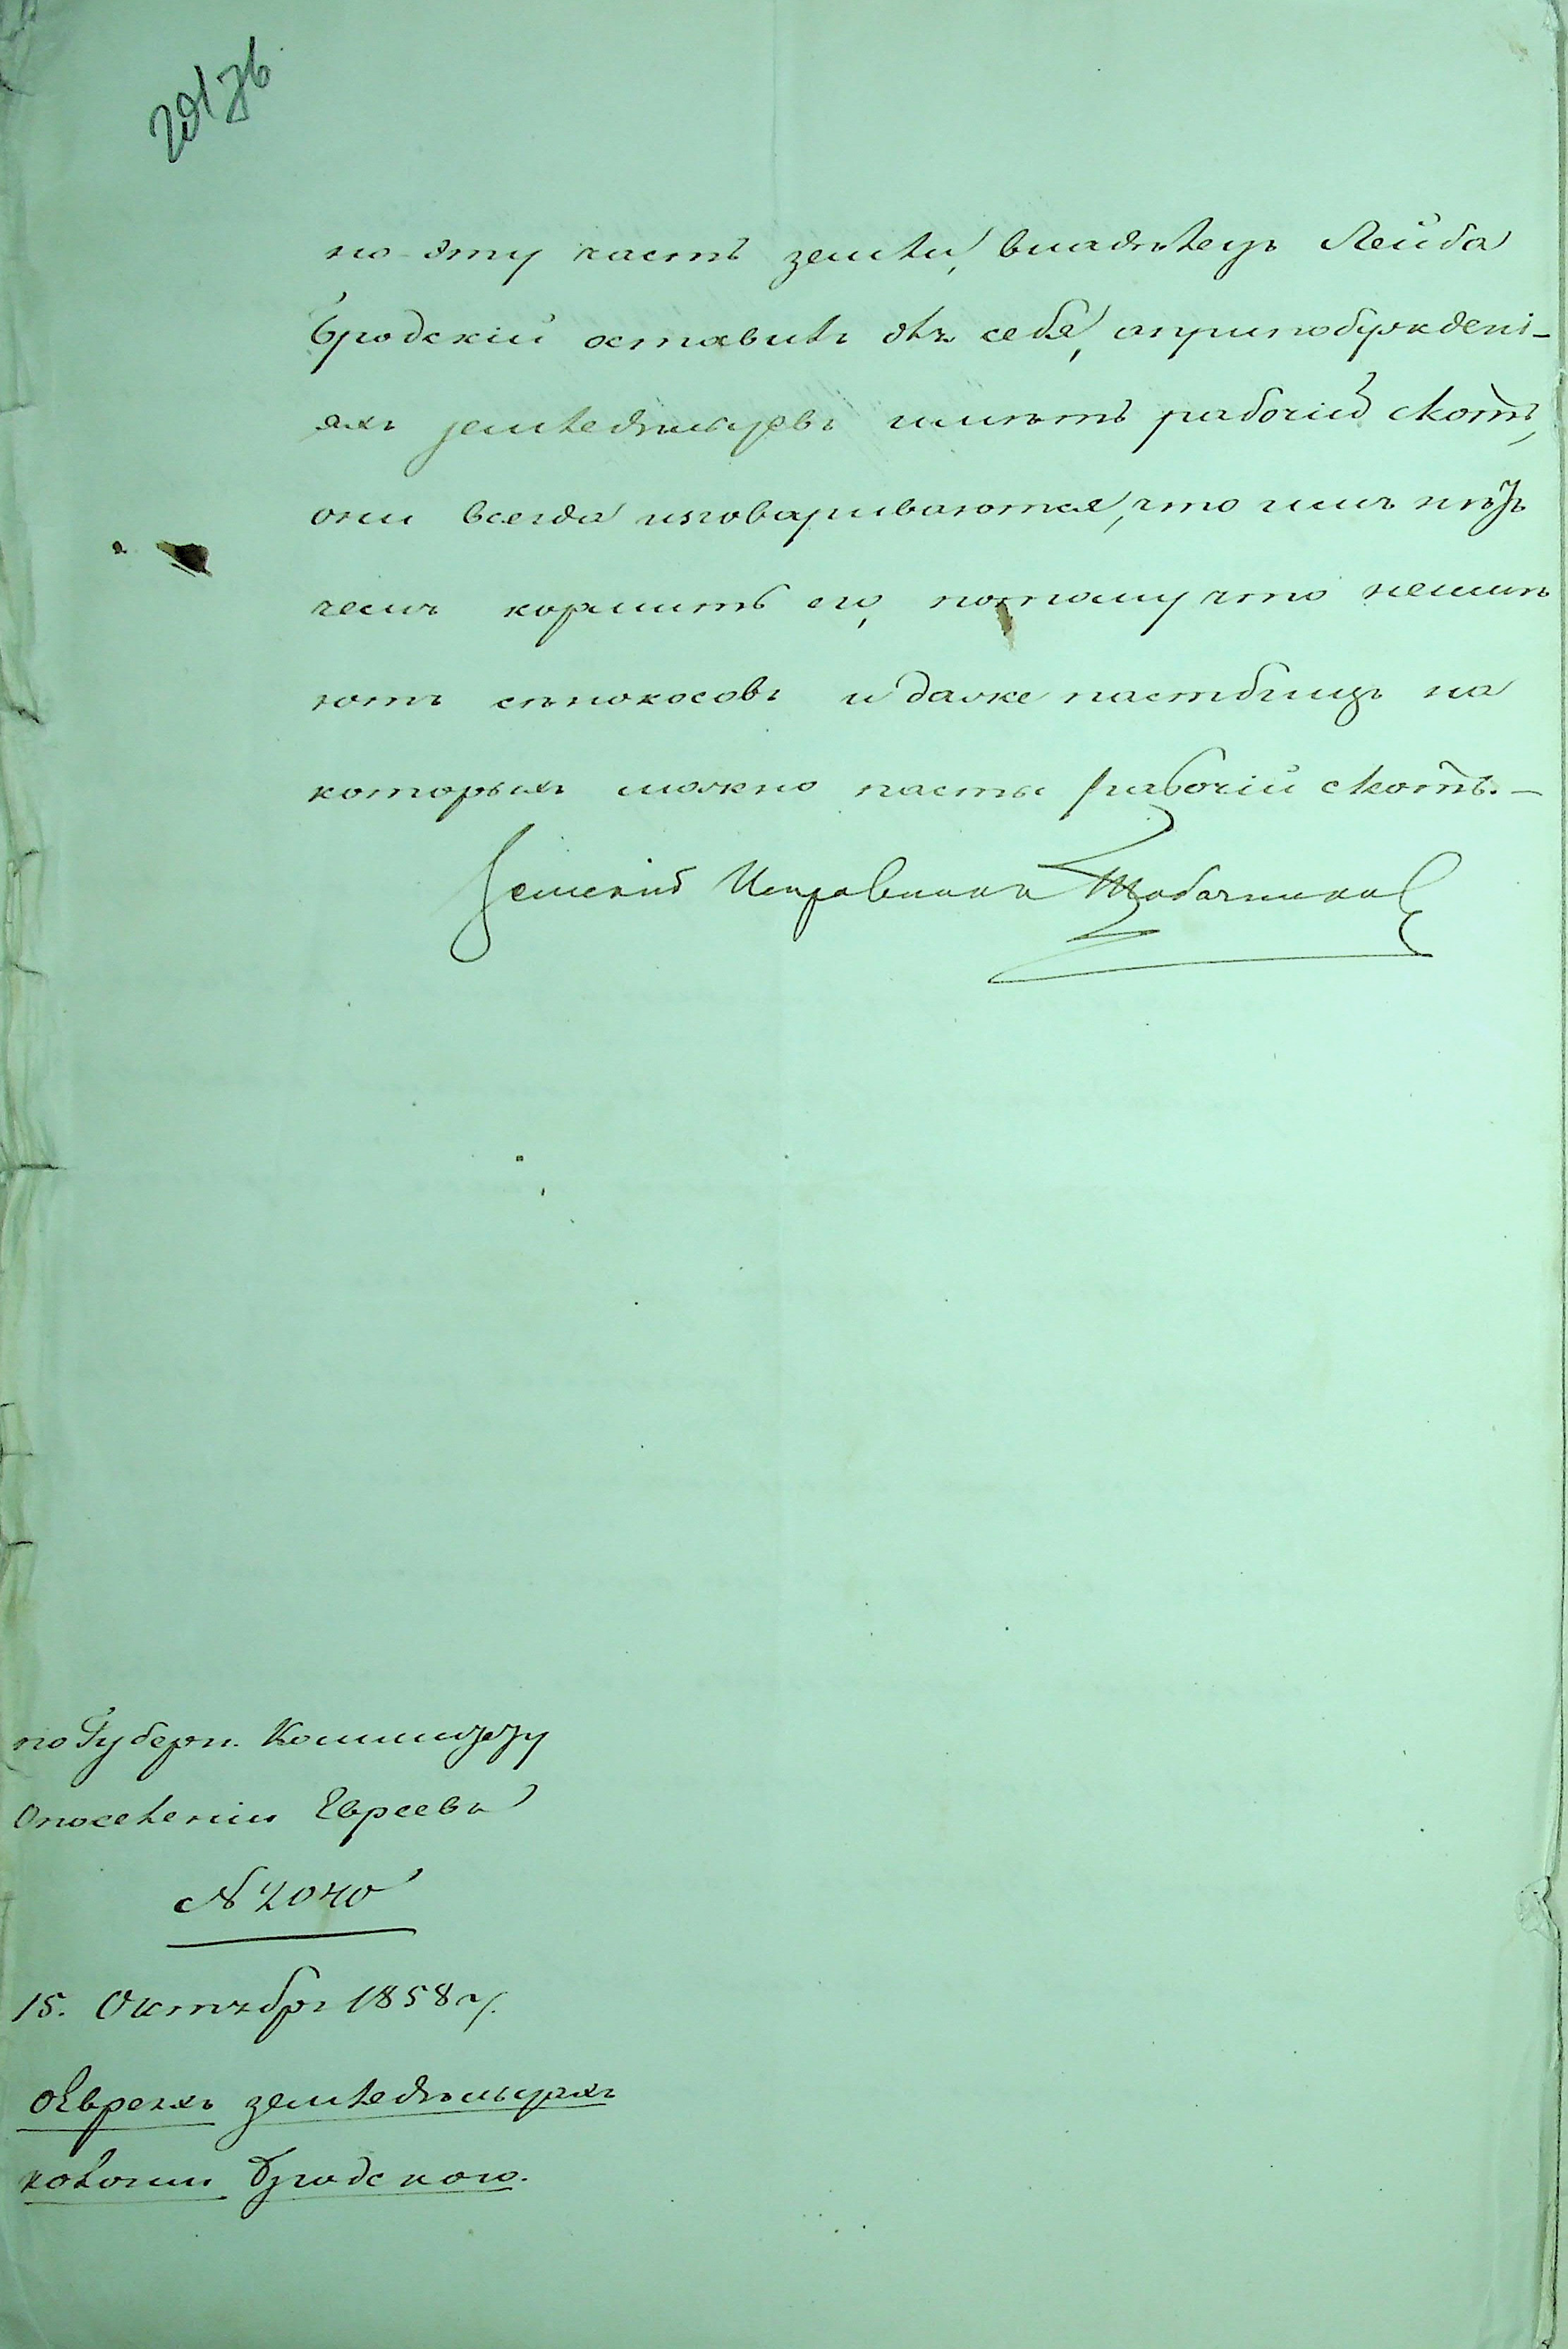 но эту часть земли, владелецъ Лейба
Бродскій оставилъ для себя, априпобужденi-
яхъ земледѣльцевъ имѣть рабочій скотъ,
они всегда изговариваются, что имъ нѣтъ
чемъ кормить его, потому что неимѣ
ютъ сѣнокосовъ и даже пастбищъ на
которыхъ можно пасты рабочій скотъ.—
Земскій Исправникъ Табачниковъ
по Губерн. Коммитету
Опоселеніи Евреевъ
№ 2040
15. Октября 1858 г.
оЕвреяхъ земледѣльцахъ
колоніи Бродского.